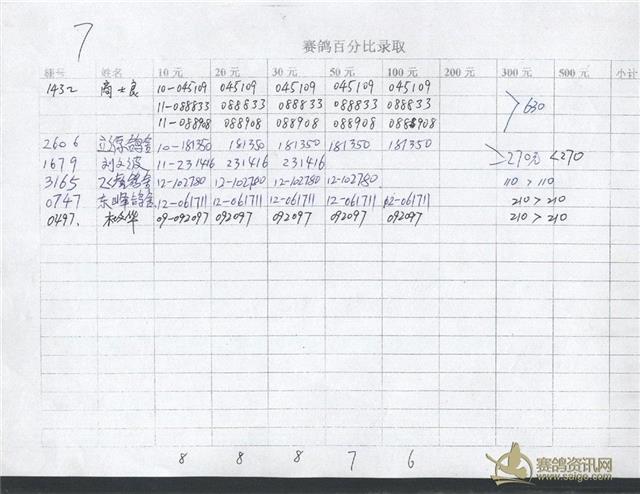 7
赛鸽百分比录取
棚号 姓名 10元 20元 30元 50元 100元 200元 300元 500元 小计
1432 商士良 10-045109 045109 045109 045109 045109
11-088833 088833 088833 088833 088833 >630
11-088908 088908 088908 088908 088908
2606 立源鸽舍 10-181350 181350 181350 181350 181350
1679 刘文波 11-231416 231416 231416 >270元 <270
3165 鸽舍 12-102780 12-102780 12-102780 12-102780 110 > 110
0747 东峰鸽舍 12-061711 12-061711 12-061711 12-061711 12-061711 210 > 210
0497. 华 09-092097 092097 092097 092097 092097 210 > 210
8 8 8 7 6
赛鸽资讯网
www.saige.com